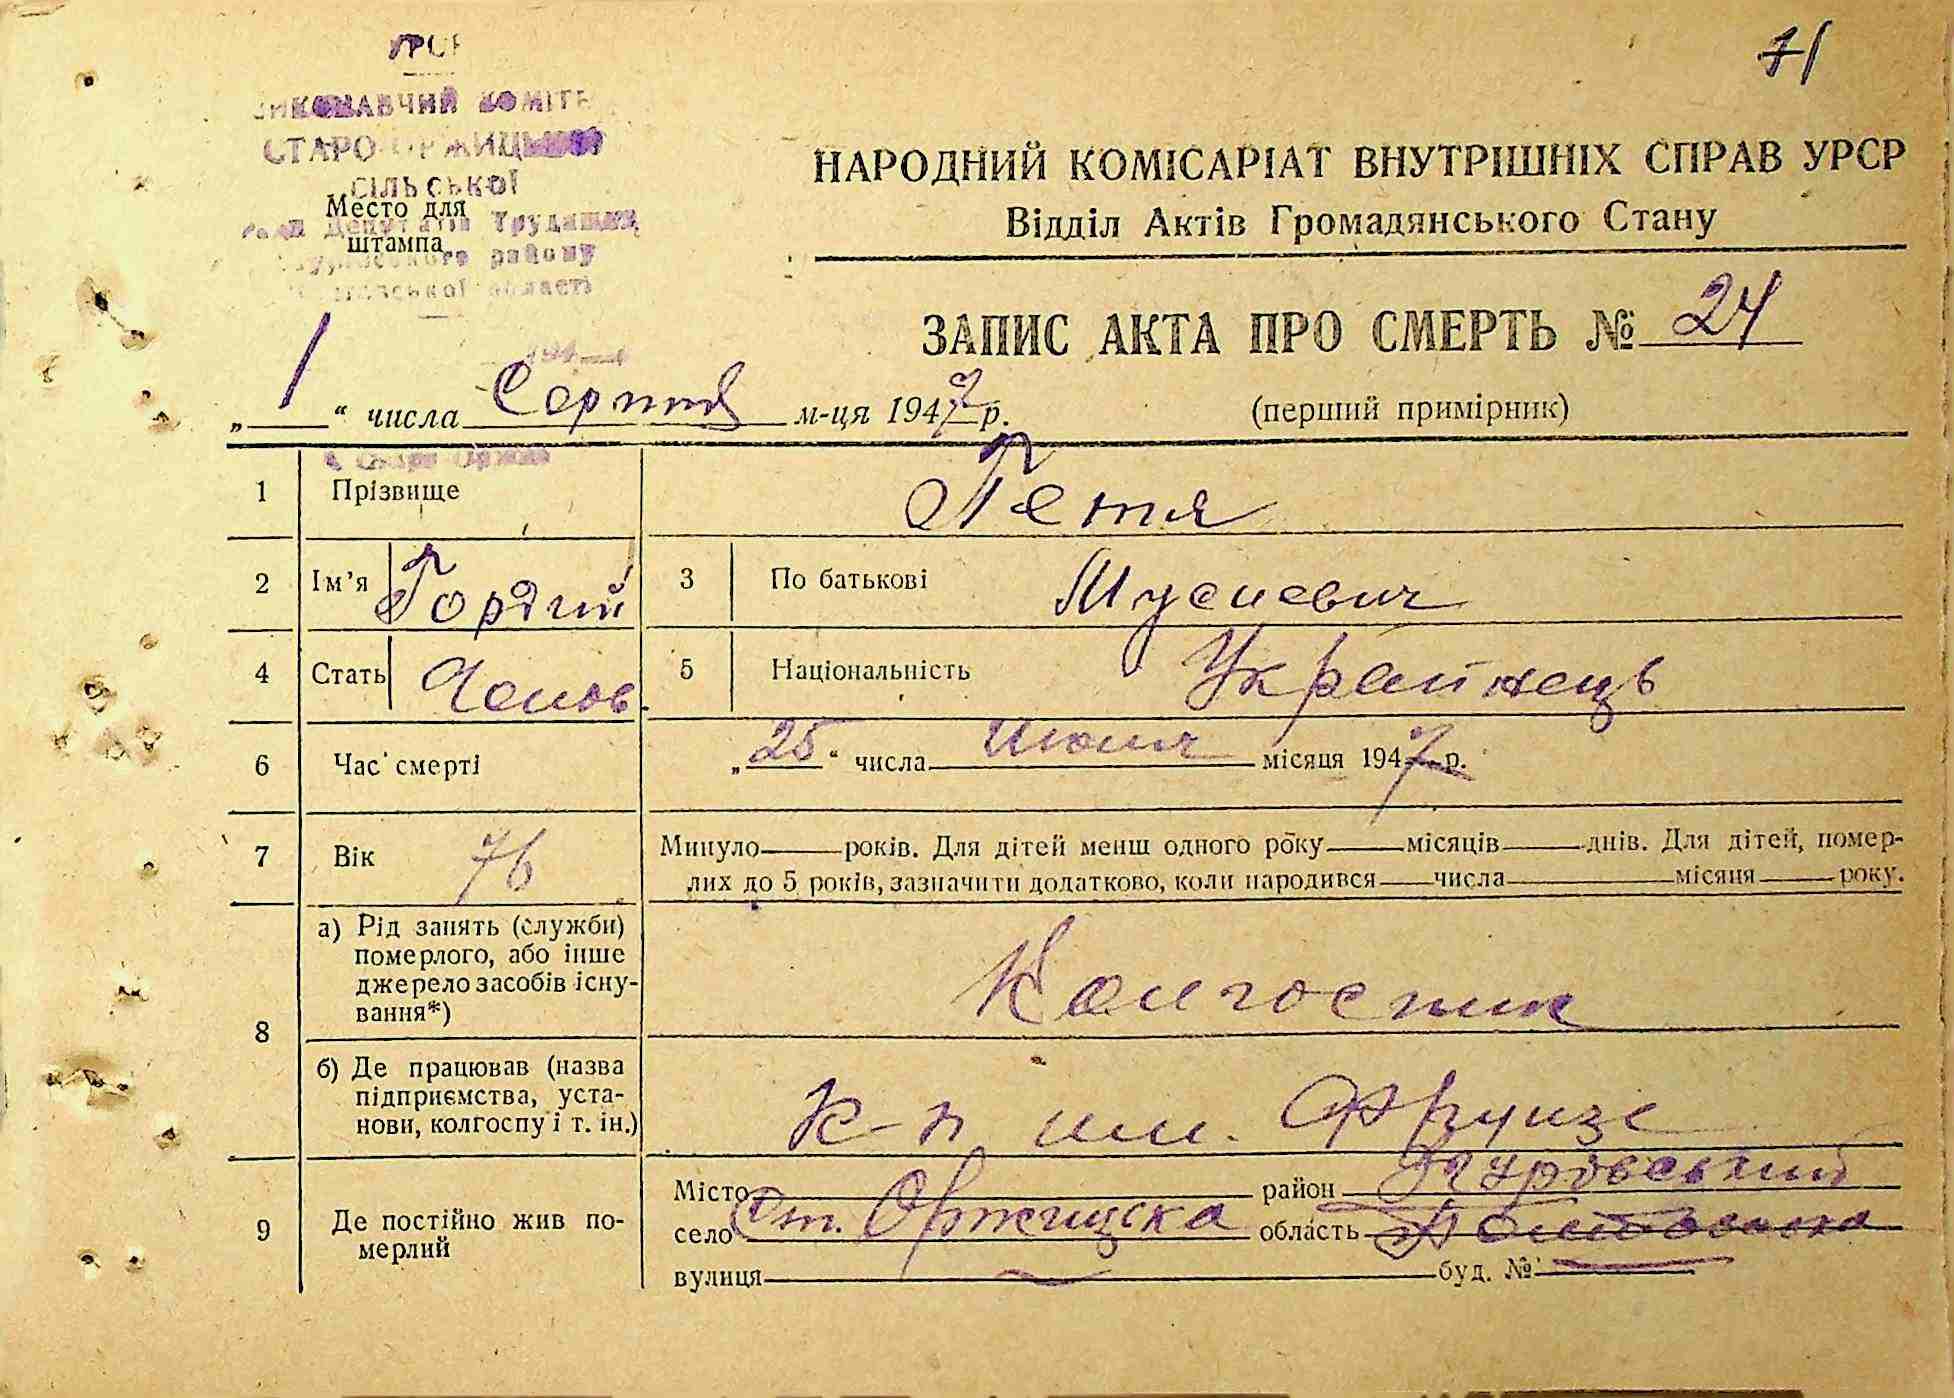 71
УРСР
ВИКОНАВЧИЙ КОМІТЕ
СТАРО-ОРЖИЦЬКОЇ
СІЛЬСЬКОЇ
Место для
Ради Депутатів Трудящих
штампа
району
області
НАРОДНИЙ КОМІСАРІАТ ВНУТРІШНІХ СПРАВ УРСР
Відділ Актів Громадянського Стану
ЗАПИС АКТА ПРО СМЕРТЬ № 24
„1“ числа Серпня м-ця 1947 р.
(перший примірник)
с. Стара Оржиця
1 Прізвище Петя
2 Ім’я Гордій 3 По батькові Мусиевич
4 Стать Чолов. 5 Національність Українець
6 Час смерті „25“ числа Июля місяця 1947 р.
7 Вік 76 Минуло років. Для дітей менш одного року місяців днів. Для дітей, помер-
лих до 5 років, зазначити додатково, коли народився числа місяця року.
8 а) Рід занять (служби)
померлого, або інше
джерело засобів існу-
вання*)
Колгоспник
б) Де працював (назва
підприємства, уста-
нови, колгоспу і т. ін.)
К-п им. Фрунзе
9 Де постійно жив по-
мерлий
Місто район Згурівський
село Ст. Оржицька область Полтавська
вулиця буд. №